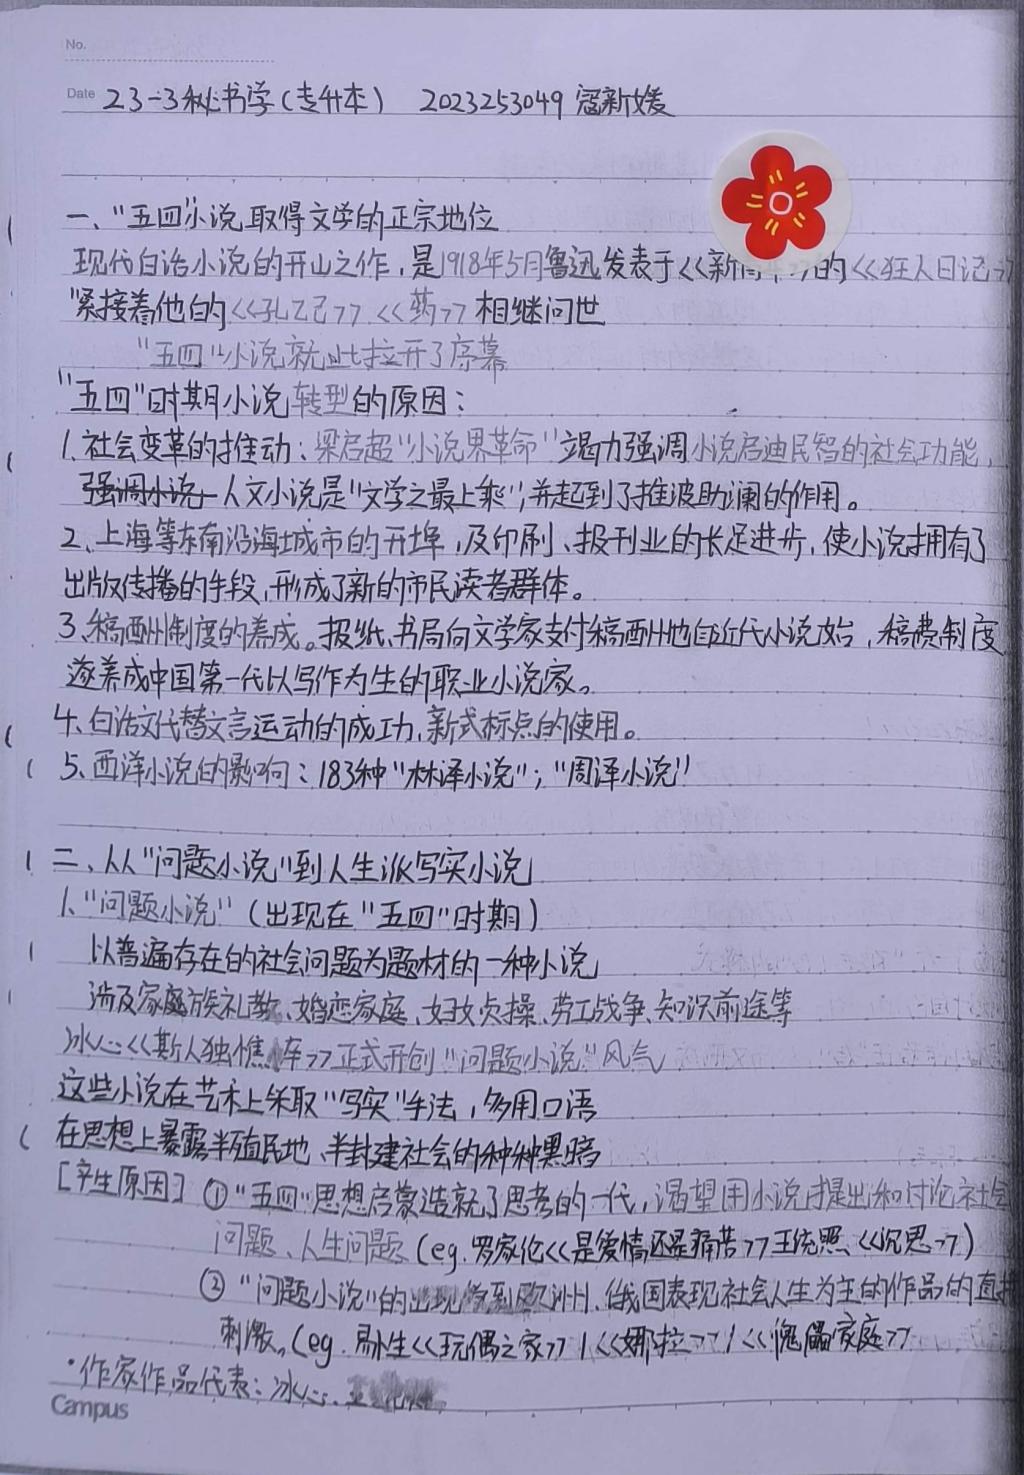 No.
Date 23-3秘书学(专升本) 2023253049 寇新媛
一、"五四"小说取得文学的正宗地位
现代白话小说的开山之作,是1918年5月鲁迅发表于<<新青年>>的<<狂人日记>>
紧接着他的<<孔乙己>> <<药>>相继问世
"五四"小说就此拉开了序幕
"五四"时期小说转型的原因:
1.社会变革的推动:梁启超"小说界革命"竭力强调小说启迪民智的社会功能,
强调小说 人文小说是"文学之最上乘",并起到了推波助澜的作用。
2、上海等东南沿海城市的开埠,及印刷、报刊业的长足进步,使小说拥有了
出版传播的手段,形成了新的市民读者群体。
3、稿酬制度的养成。报纸、书局向文学家支付稿酬也自近代小说始,稿费制度
逐养成中国第一代以写作为生的职业小说家。
4、白话文代替文言运动的成功,新式标点的使用。
5、西洋小说的影响:183种"林泽小说";"周泽小说"
二、从"问题小说"到人生派写实小说
1、"问题小说"(出现在"五四"时期)
以普遍存在的社会问题为题材的一种小说
涉及家庭族礼教、婚恋家庭、妇女贞操、劳工战争、知识前途等
冰心<<斯人独憔悴>>正式开创"问题小说"风气
这些小说在艺术上采取"写实"手法,多用口语
在思想上暴露半殖民地、半封建社会的种种黑暗
[产生原因] ①"五四"思想启蒙造就了思考的一代,渴望用小说提出和讨论社会
问题、人生问题(eg.罗家伦<<是爱情还是痛苦>>王统照、<<沉思>>)
②"问题小说"的出现受到欧洲、俄国表现社会人生为主的作品的直接
刺激。(eg.易卜生<<玩偶之家>>/<<娜拉>>/<<傀儡家庭>>
·作家作品代表:冰心、
Campus